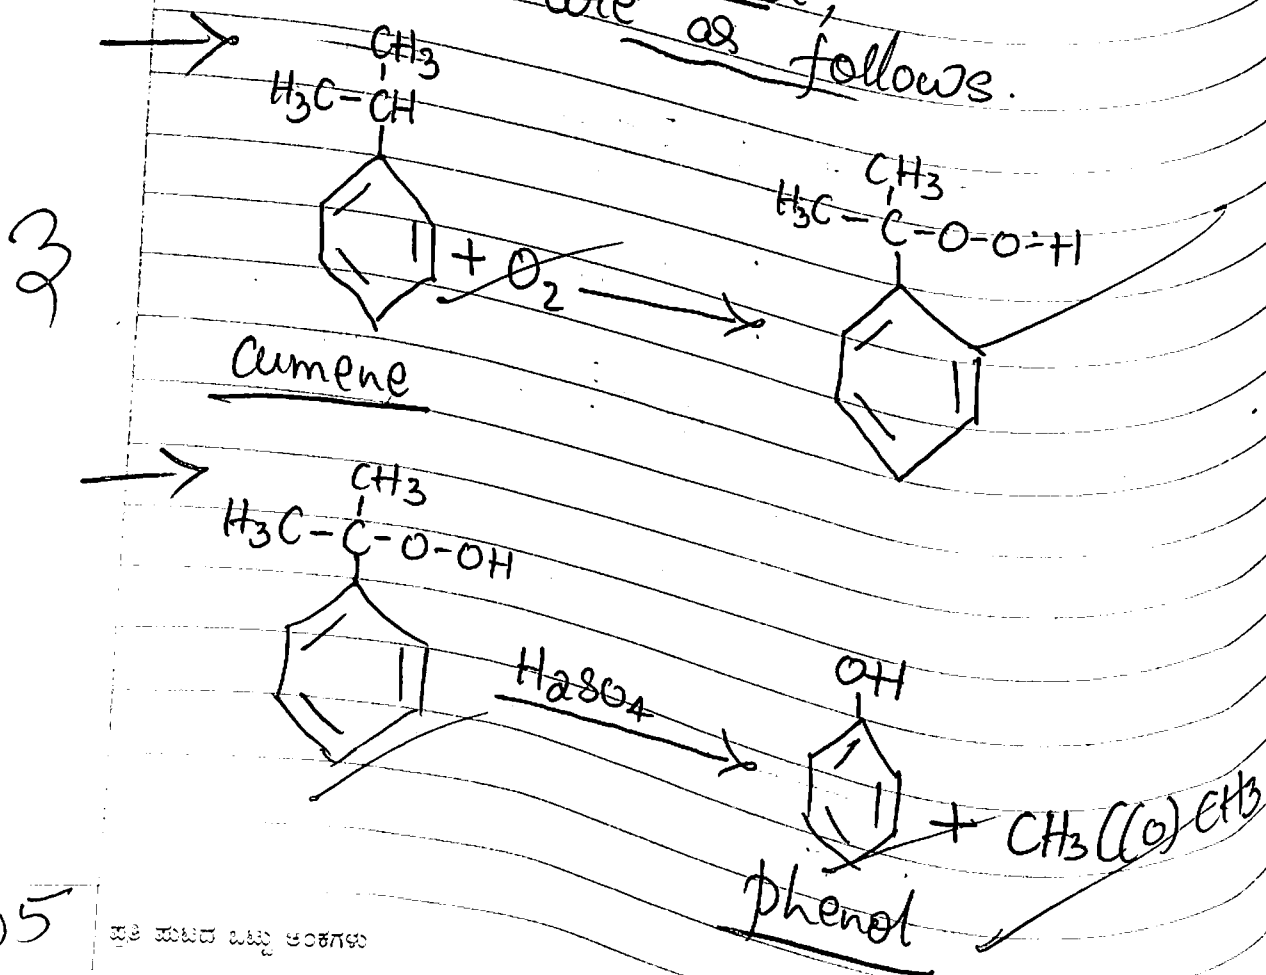 are as follows.
CH3
H3C-CH
CH3
H3C-C-O-O-H
3
+ O2
Cumene
CH3
H3C-C-O-OH
H2SO4
OH
+ CH3C(O)CH3
Phenol
05
ಪ್ರತಿ ಪುಟದ ಒಟ್ಟು ಅಂಕಗಳು